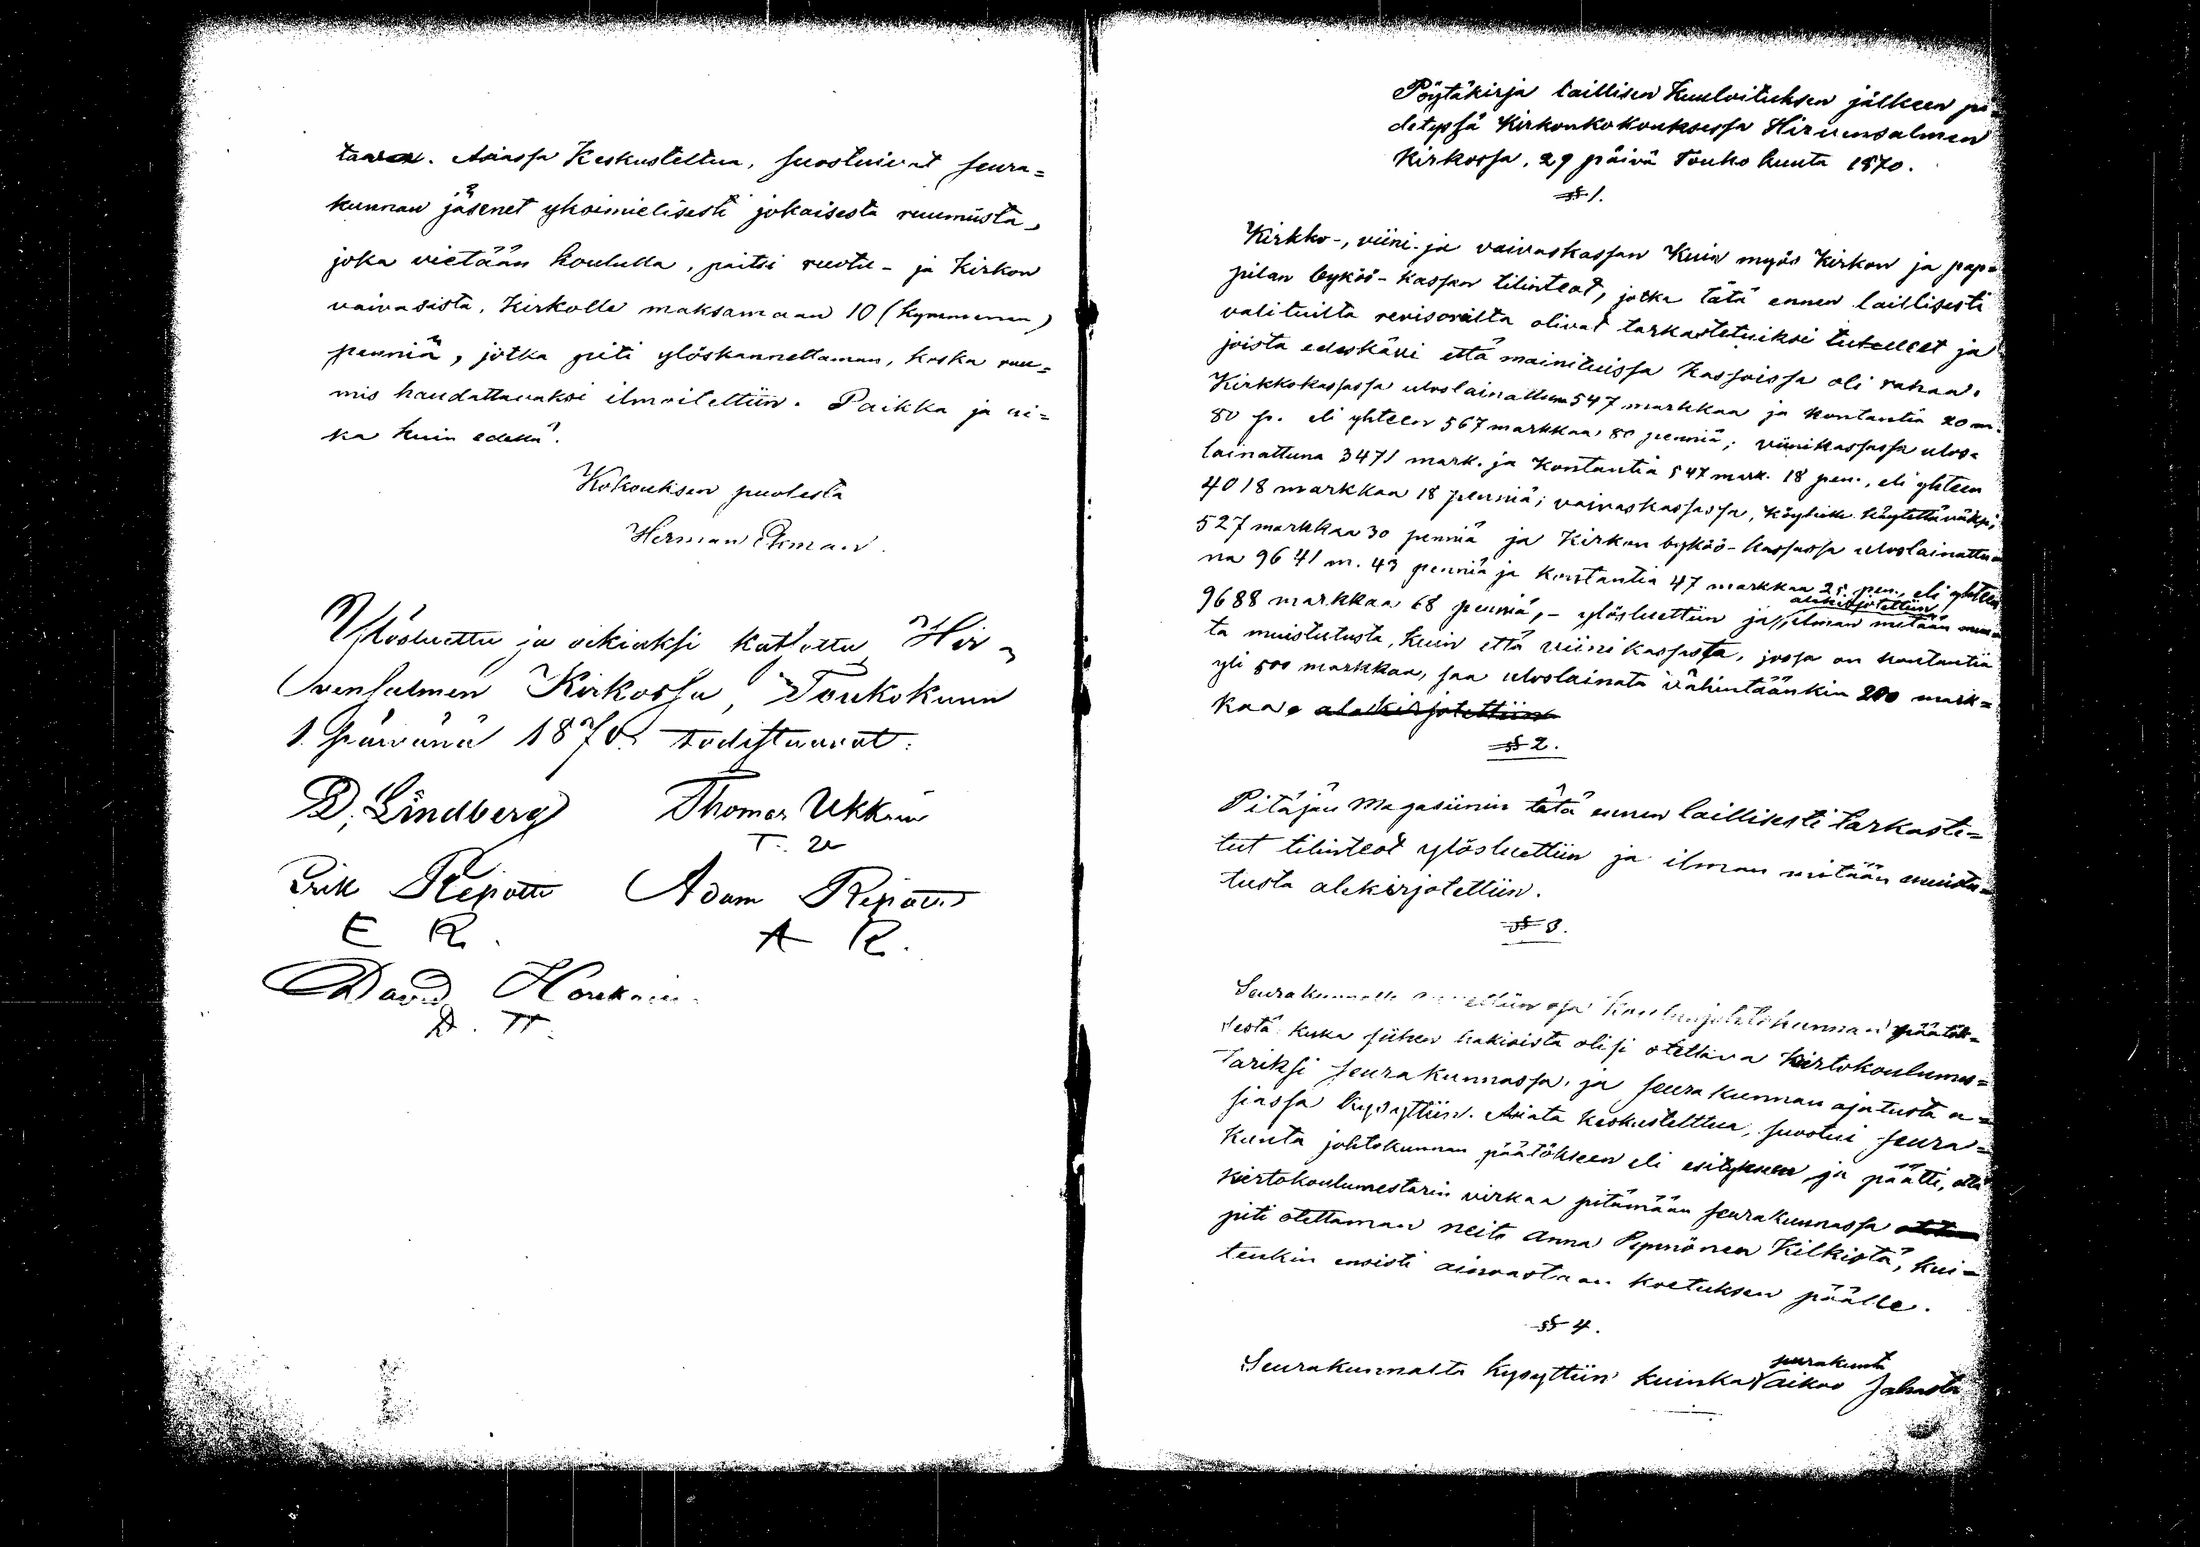 taaren. Asiassa Keskusteltua, suostuivat seura=
kunnan jäsenet yksimielisesti jokaisesta ruumiista,
joka vietään kouluka, paitsi ruotu- ja Kirkon
vaivasista, Kirkolle maksamaan 10 (kymmenen)
penniä, jotka piti ylöskannettaman, koska ruu=
mis haudattavaksi ilmoitettiin. Paikka ja ai=
ka kuin edellä.
Kokouksen puolesta
Herman Ekman.
Ylösluettu ja oikiaksi katsottu Hir=
vensalmen Kirkossa, Toukokuun
1. päivänä 1870. todistavat:
D. Lindberg Thomas Ukkonen
T. U
Erik Ripatti Adam Ripatti
E R. A R.
David Honkanen.
D. H.
Pöytäkirja laillisen Kuuloituksen jälkeen pi=
detyssä Kirkonkokouksessa Hirvensalmen
Kirkossa, 29 päivä Touko kuuta 1870.
§ 1.
Kirkko-, viini- ja vaivaskassan Kuin myös Kirkon ja pap=
pilan byköö-kassan tilinteot, jotka tätä ennen laillisesti
valituilta revisoreilta olivat tarkastetuiksi tulleet ja
joista edeskävi että mainituissa Kassoissa oli rahaa:
Kirkkokassassa uloslainattuna 547 markkaa ja kontantia 20 m.
80 p. eli yhteen 567 markkaa 80 penniä; viinikassassa ulos=
lainattuna 3471 mark. ja kontantia 547 mark. 18 pen., eli yhteen
4018 markkaa 18 penniä; vaivaskassassa, köyhille käytettäväksi,
527 markkaa 30 penniä ja Kirkon byköö-kassassa uloslainattu=
na 9641 m. 43 penniä ja kontantia 47 markkaa 25 pen., eli yhteen
9688 markkaa 68 penniä,- ylösluettiin ja alekirjotettiin ilman mitään muu=
ta muistutusta, kuin että viinikassasta, jossa on kontantia
yli 500 markkaa, saa uloslainata vähintäänkin 200 mark=
kaa. alekirjotettiin
§ 2.
Pitäjän Magasiinin tätä ennen laillisesti tarkaste=
tut tilinteot ylösluettiin ja ilman mitään muistu=
tusta alekirjotettiin.
§ 3.
Seurakunnalle Koulunjohtokunnan päätök=
sestä kuka siihen hakioista olisi otettava Kiertokoulumes=
tariksi seurakunnassa, ja seurakunnan ajatusta a=
siassa kysyttiin. Asiata keskusteltua, suostui seura=
kunta johtokunnan päätökseen eli esitykseen ja päätti, että
kiertokoulumestarin virkaa pitämään seurakunnassa
piti otettaman neito Anna Pynnönen Kilkistä, kui=
tenkin ensisti ainoastaan koetuksen päälle.
§ 4.
Seurakunnalta kysyttiin kuinka seurakunta aikoo